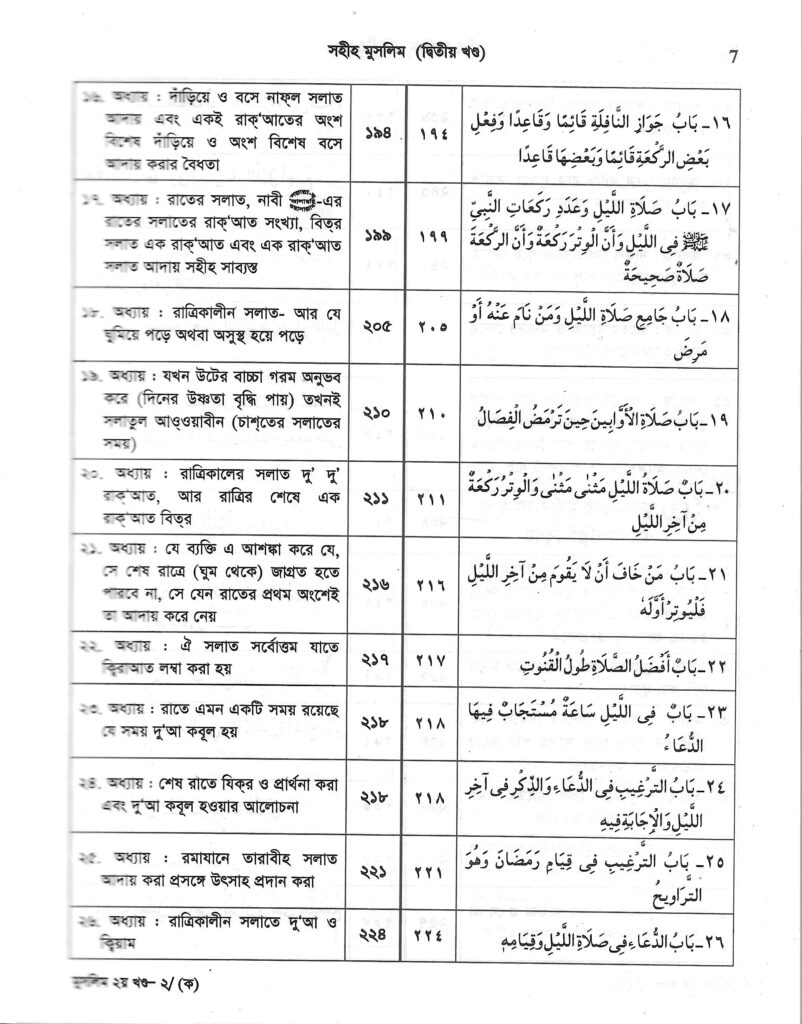 সহীহ মুসলিম (দ্বিতীয় খণ্ড)
7
১৬. অধ্যায় : দাঁড়িয়ে ও বসে নাফ্ল সলাত
আদায় এবং একই রাক্'আতের অংশ
বিশেষ দাঁড়িয়ে ও অংশ বিশেষ বসে
আদায় করার বৈধতা
১৯৪
١٩٤
١٦- بَابُ جَوَازِ النَّافِلَةِ قَائِمًا وَقَاعِدًا وَفِعْلِ
بَعْضِ الرَّكْعَةِ قَائِمًا وَبَعْضِهَا قَاعِدًا
১৭. অধ্যায় : রাতের সলাত, নাবী ﷺ-এর
রাতের সলাতের রাক্'আত সংখ্যা, বিত্র
সলাত এক রাক্'আত এবং এক রাক্'আত
সলাত আদায় সহীহ সাব্যস্ত
১৯৯
١٩٩
١٧- بَابُ صَلَاةِ اللَّيْلِ وَعَدَدِ رَكَعَاتِ النَّبِيِّ
ﷺ فِي اللَّيْلِ وَأَنَّ الْوِتْرَ رَكْعَةٌ وَأَنَّ الرَّكْعَةَ
صَلَاةٌ صَحِيحَةٌ
১৮. অধ্যায় : রাত্রিকালীন সলাত- আর যে
ঘুমিয়ে পড়ে অথবা অসুস্থ হয়ে পড়ে
২০৫
٢٠٥
١٨- بَابُ جَامِعِ صَلَاةِ اللَّيْلِ وَمَنْ نَامَ عَنْهُ أَوْ
مَرِضَ
১৯. অধ্যায় : যখন উটের বাচ্চা গরম অনুভব
করে (দিনের উষ্ণতা বৃদ্ধি পায়) তখনই
সলাতুল আও্ওয়াবীন (চাশ্তের সলাতের
সময়)
২১০
٢١٠
١٩- بَابُ صَلَاةِ الْأَوَّابِينَ حِينَ تَرْمَضُ الْفِصَالُ
২০. অধ্যায় : রাত্রিকালের সলাত দু' দু'
রাক্'আত, আর রাত্রির শেষে এক
রাক্'আত বিত্র
২১১
٢١١
٢٠- بَابُ صَلَاةُ اللَّيْلِ مَثْنَى مَثْنَى وَالْوِتْرُ رَكْعَةٌ
مِنْ آخِرِ اللَّيْلِ
২১. অধ্যায় : যে ব্যক্তি এ আশঙ্কা করে যে,
সে শেষ রাত্রে (ঘুম থেকে) জাগ্রত হতে
পারবে না, সে যেন রাতের প্রথম অংশেই
তা আদায় করে নেয়
২১৬
٢١٦
٢١- بَابُ مَنْ خَافَ أَنْ لَا يَقُومَ مِنْ آخِرِ اللَّيْلِ
فَلْيُوتِرْ أَوَّلَهُ
২২. অধ্যায় : ঐ সলাত সর্বোত্তম যাতে
ক্বিরাআত লম্বা করা হয়
২১৭
٢١٧
٢٢- بَابُ أَفْضَلُ الصَّلَاةِ طُولُ الْقُنُوتِ
২৩. অধ্যায় : রাতে এমন একটি সময় রয়েছে
যে সময় দু'আ কবূল হয়
২১৮
٢١٨
٢٣- بَابُ فِي اللَّيْلِ سَاعَةٌ مُسْتَجَابٌ فِيهَا
الدُّعَاءُ
২৪. অধ্যায় : শেষ রাতে যিক্র ও প্রার্থনা করা
এবং দু'আ কবূল হওয়ার আলোচনা
২১৮
٢١٨
٢٤- بَابُ التَّرْغِيبِ فِي الدُّعَاءِ وَالذِّكْرِ فِي آخِرِ
اللَّيْلِ وَالْإِجَابَةِ فِيهِ
২৫. অধ্যায় : রমাযানে তারাবীহ সলাত
আদায় করা প্রসঙ্গে উৎসাহ প্রদান করা
২২১
٢٢١
٢٥- بَابُ التَّرْغِيبِ فِي قِيَامِ رَمَضَانَ وَهُوَ
التَّرَاوِيحُ
২৬. অধ্যায় : রাত্রিকালীন সলাতে দু'আ ও
ক্বিয়াম
২২৪
٢٢٤
٢٦- بَابُ الدُّعَاءِ فِي صَلَاةِ اللَّيْلِ وَقِيَامِهِ
মুসলিম ২য় খণ্ড- ২/ (ক)